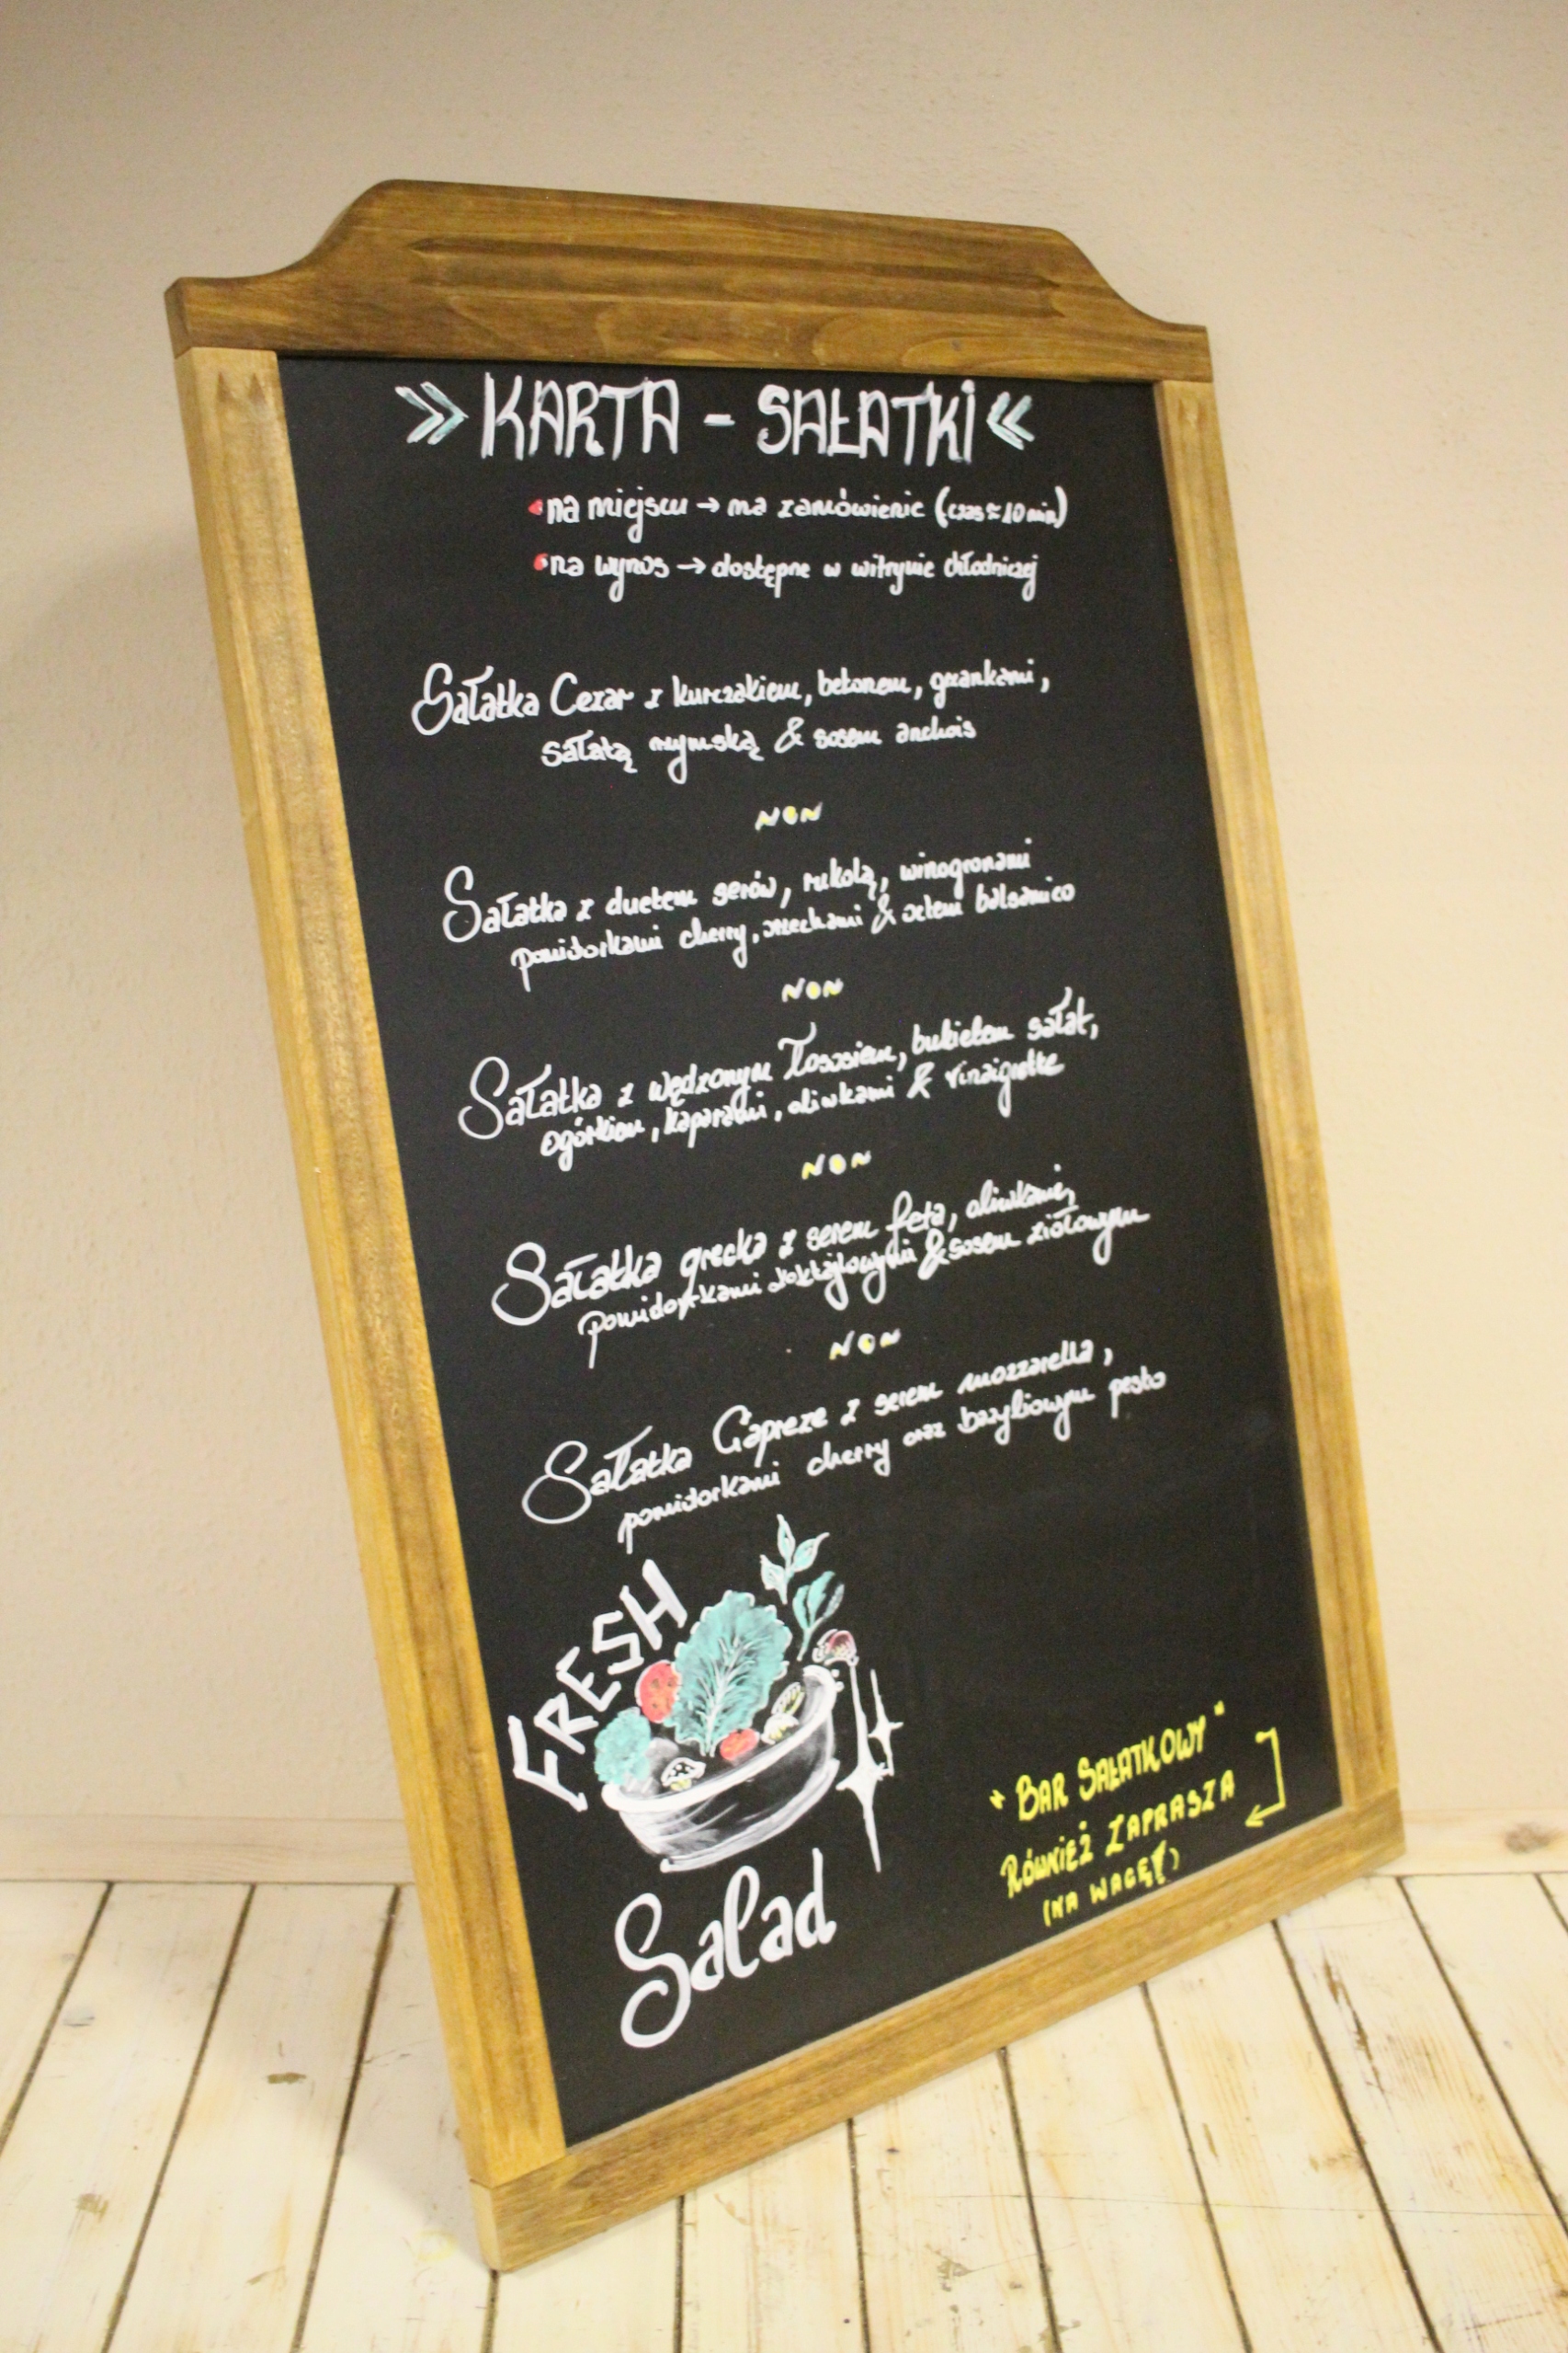 » KARTA - SAŁATKI «
• na miejscu → na zamówienie (czas ≈ 10 min)
• na wynos → dostępne w witrynie chłodniczej
Sałatka Cezar z kurczakiem, bekonem, grzankami,
sałatą rzymską & sosem anchois
Sałatka z duetem serów, rukolą, winogronami
pomidorkami cherry, orzechami & octem balsamico
Sałatka z wędzonym łososiem, bukietem sałat,
ogórkiem, kaparami, oliwkami & vinaigrette
Sałatka grecka z serem feta, oliwkami,
pomidorkami koktajlowymi & sosem ziołowym
Sałatka Capreze z serem mozzarella,
pomidorkami cherry oraz bazyliowym pesto
FRESH
Salad
"BAR SAŁATKOWY"
RÓWNIEŻ ZAPRASZA
(NA WAGĘ)